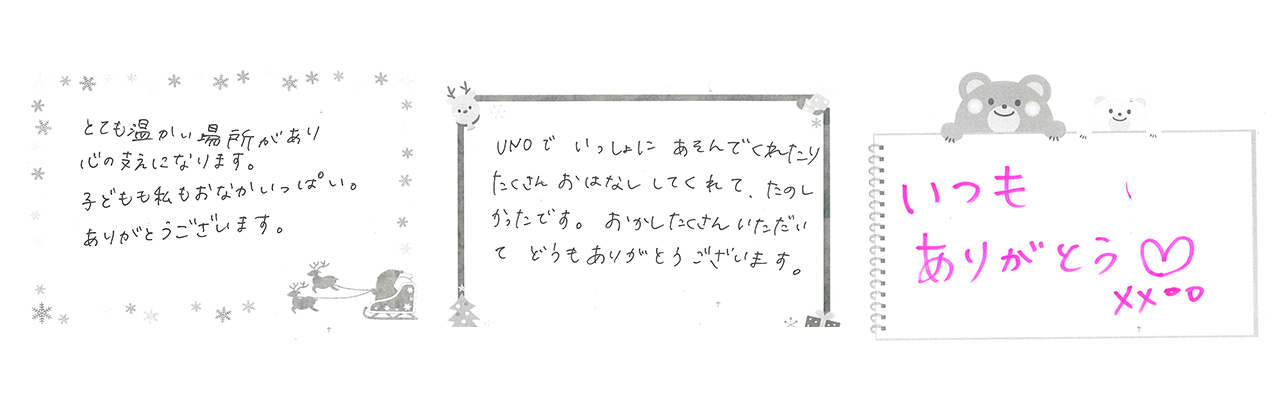 とても温かい場所があり
心の支えになります。
子どもも私もおなかいっぱい。
ありがとうございます。
UNOで いっしょに あそんでくれたり
たくさん おはなし してくれて、たのし
かったです。 おかしたくさん いただい
て どうもありがとうございます。
いつも
ありがとう♡
xxoo